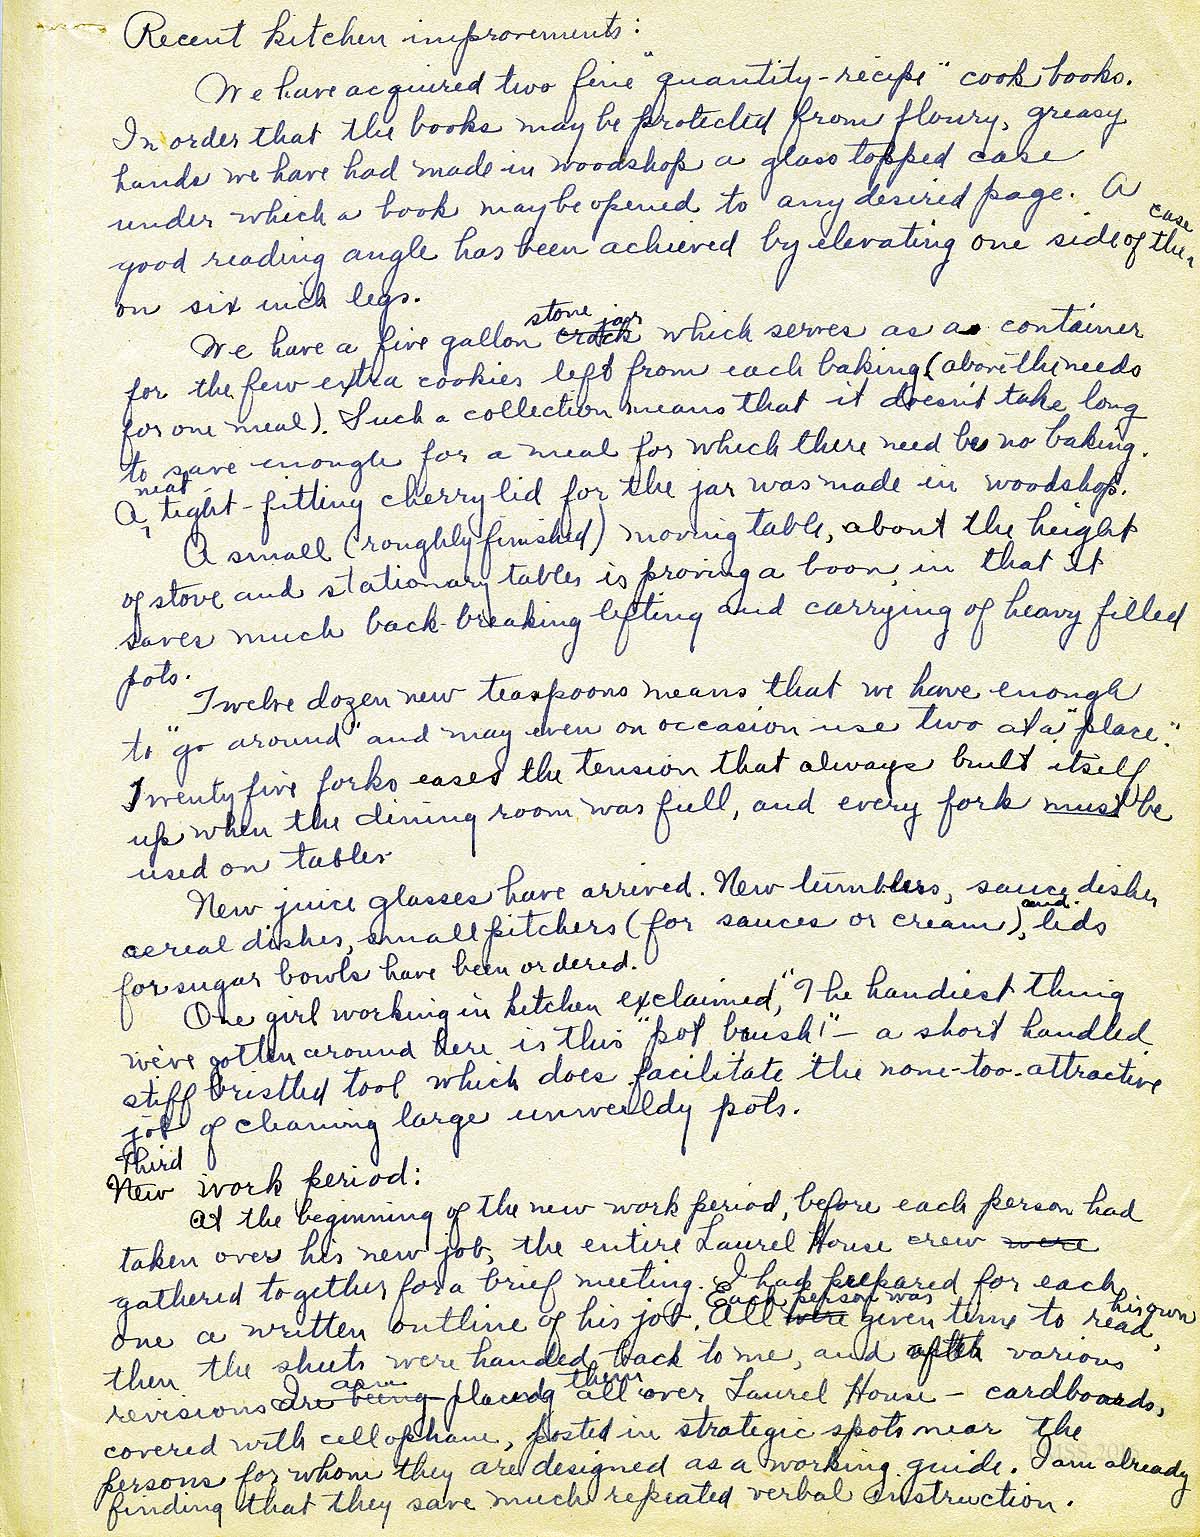 Recent kitchen improvements:
We have acquired two fine "quantity-recipe" cook books.
In order that the books may be protected from floury, greasy
hands we have had made in woodshop a glass topped case
under which a book may be opened to any desired page. A
good reading angle has been achieved by elevating one side of the case
on six inch legs.
We have a five gallon crock stone jar which serves as a container
for the few extra cookies left from each baking (above the needs
for one meal). Such a collection means that it doesn't take long
to save enough for a meal for which there need be no baking.
A neat tight-fitting cherry lid for the jar was made in woodshop.
A small (roughly finished) moving table, about the height
of stove and stationary tables is proving a boon in that it
saves much back-breaking lifting and carrying of heavy filled
pots.
Twelve dozen new teaspoons means that we have enough
to "go around" and may even on occasion use two at a "place."
Twenty five forks eases the tension that always built itself
up when the dining room was full, and every fork must be
used on tables.
New juice glasses have arrived. New tumblers, sauce dishes
cereal dishes, small pitchers (for sauces or cream), and lids
for sugar bowls have been ordered.
One girl working in kitchen exclaimed, "The handiest thing
we've gotten around here is this "pot brush!" — a short handled
stiff bristled tool which does facilitate the none-too-attractive
job of cleaning large unweildy pots.
Third
New work period:
At the beginning of the new work period, before each person had
taken over his new job, the entire Laurel House crew were
gathered together for a brief meeting. I had prepared for each
one a written outline of his job. Each person was All were given time to read his own,
then the sheets were handed back to me, and after various
revisions are being am placing them all over Laurel House – cardboards,
covered with cellophane, posted in strategic spots near the
persons for whom they are designed as a working guide. I am already
finding that they save much repeated verbal instruction.